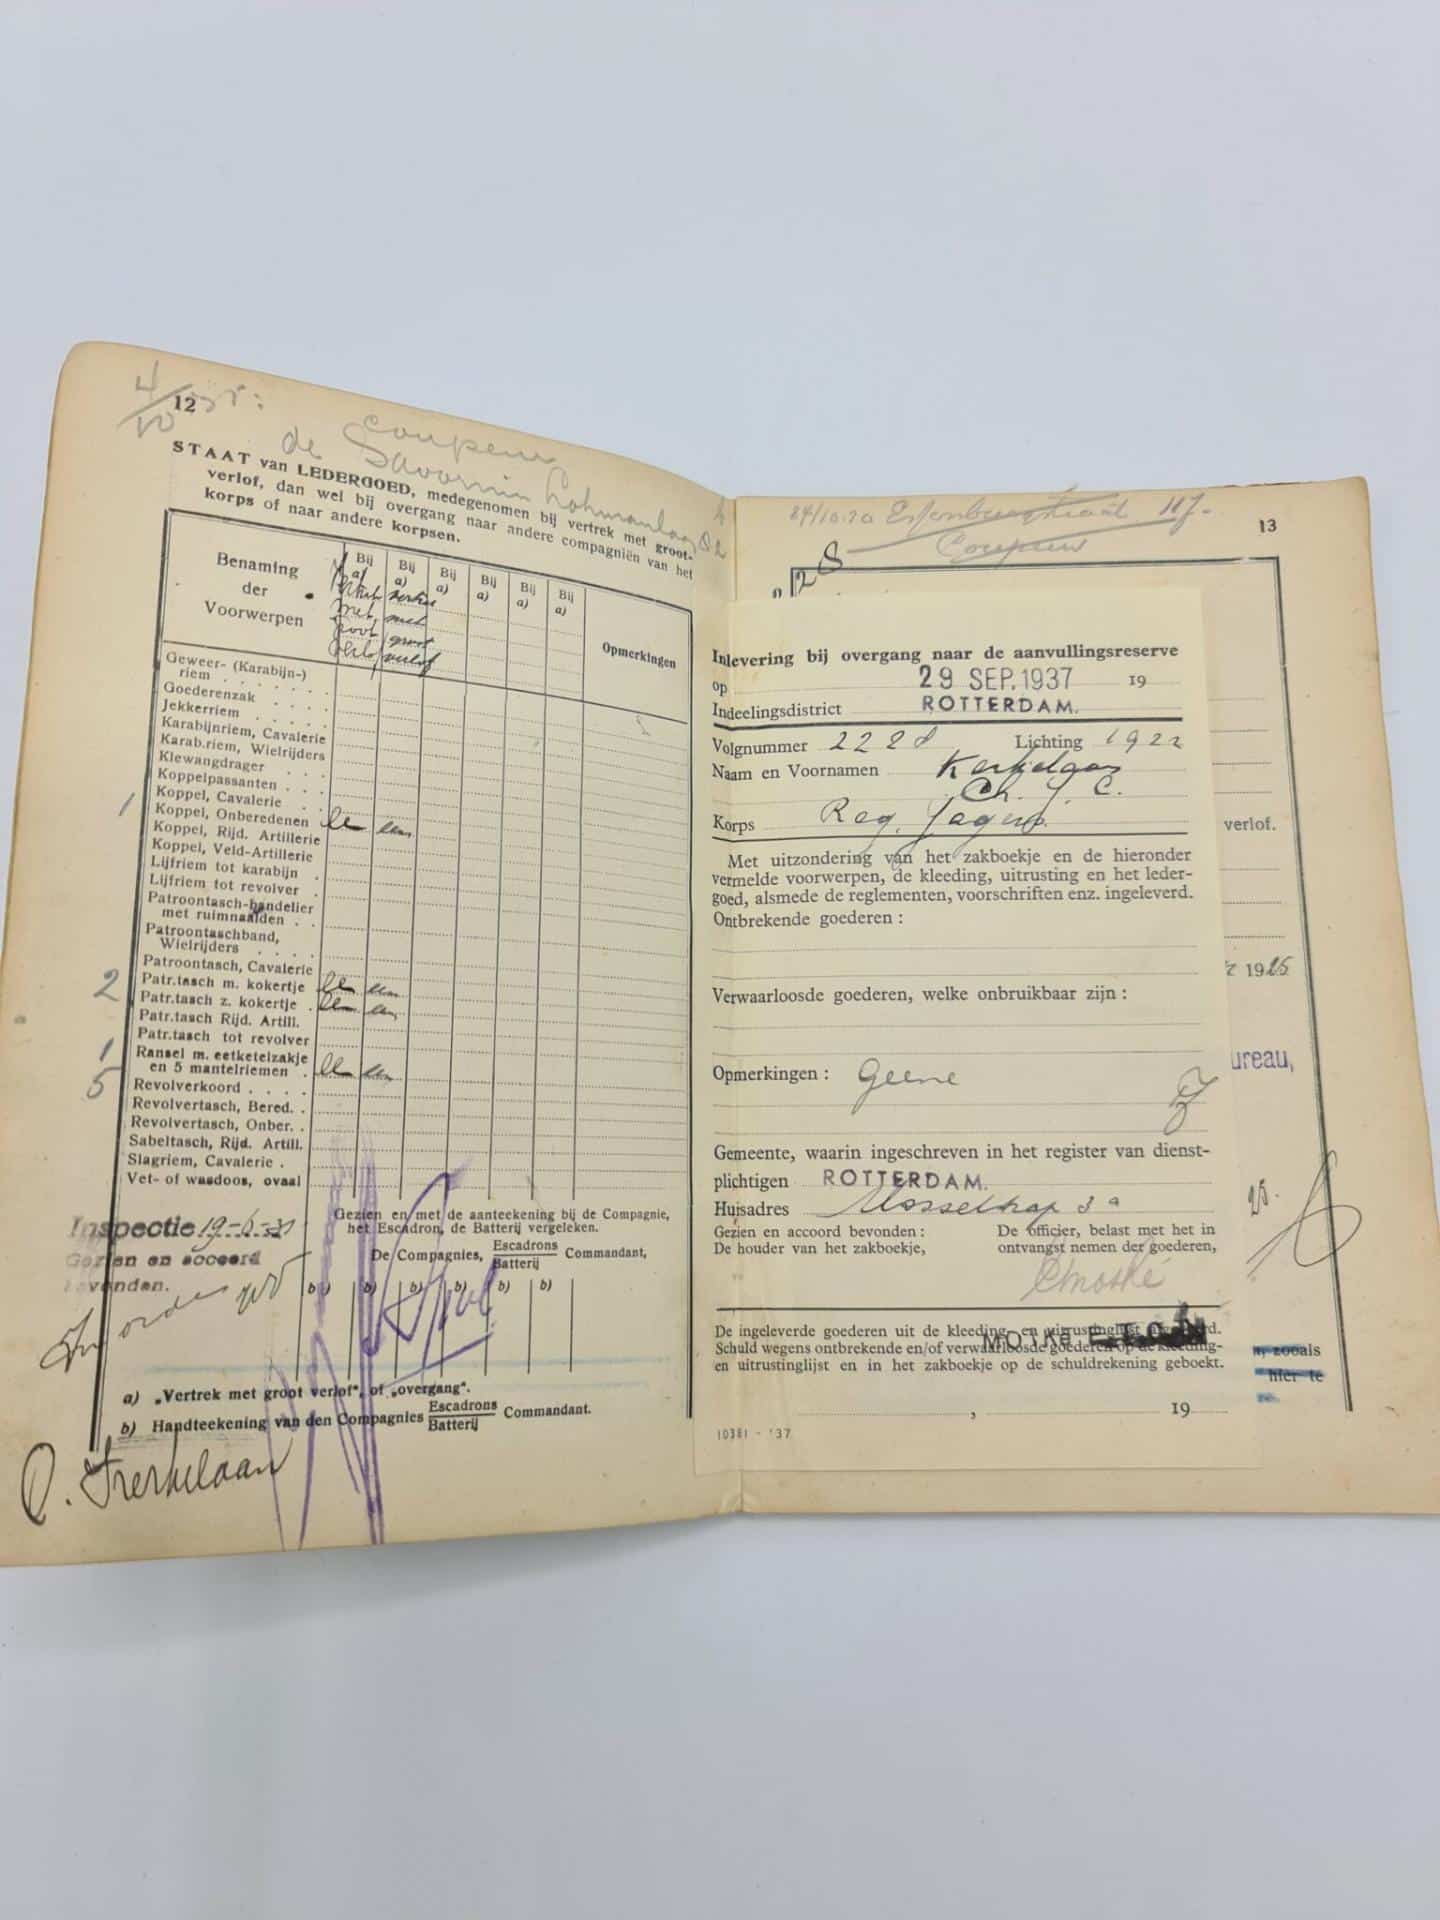 12
coupeur
de Savornin Lohmanlaan
82
STAAT van LEDERGOED, medegenomen bij vertrek met groot-
verlof, dan wel bij overgang naar andere compagniën van het
korps of naar andere korpsen.
Benaming
der
Voorwerpen
Bij a)
Bij a)
Bij a)
Bij a)
Bij a)
Bij a)
Opmerkingen
vertrek
met met
groot groot
verlof verlof
Geweer- (Karabijn-)
riem
Goederenzak
Jekkerriem
Karabijnriem, Cavalerie
Karab.riem, Wielrijders
Klewangdrager
Koppelpassanten
Koppel, Cavalerie
1 Koppel, Onberedenen een een
Koppel, Rijd. Artillerie
Koppel, Veld-Artillerie
Lijfriem tot karabijn
Lijfriem tot revolver
Patroontasch-bandelier
met ruimnaalden
Patroontaschband,
Wielrijders
Patroontasch, Cavalerie
2 Patr.tasch m. kokertje een een
Patr.tasch z. kokertje een een
Patr.tasch Rijd. Artill.
Patr.tasch tot revolver
1 Ransel m. eetketelzakje
5 en 5 mantelriemen een een
Revolverkoord
Revolvertasch, Bered.
Revolvertasch, Onber.
Sabeltasch, Rijd. Artill.
Slagriem, Cavalerie
Vet- of wasdoos, ovaal
Inspectie 19-6-31
Gezien en accoord
bevonden.
Gezien en met de aanteekening bij de Compagnie,
het Escadron, de Batterij vergeleken.
De Compagnies, Escadrons Batterij Commandant,
b) b) b) b) b) b)
a) „Vertrek met groot verlof", of „overgang".
b) Handteekening van den Compagnies Escadrons Batterij Commandant.
13
117
Coupeur
Inlevering bij overgang naar de aanvullingsreserve
op 29 SEP. 1937 19
Indeelingsdistrict ROTTERDAM.
Volgnummer 2228 Lichting 1922
Naam en Voornamen Kerkelaan
Ch. J. C.
Korps Reg. Jagers.
Met uitzondering van het zakboekje en de hieronder
vermelde voorwerpen, de kleeding, uitrusting en het leder-
goed, alsmede de reglementen, voorschriften enz. ingeleverd.
Ontbrekende goederen :
Verwaarloosde goederen, welke onbruikbaar zijn :
Opmerkingen : Geene
Gemeente, waarin ingeschreven in het register van dienst-
plichtigen ROTTERDAM.
Huisadres Mosselkap 3a
Gezien en accoord bevonden :
De houder van het zakboekje,
De officier, belast met het in
ontvangst nemen der goederen,
De ingeleverde goederen uit de kleeding- en uitrustinglijst afgevoerd.
Schuld wegens ontbrekende en/of verwaarloosde goederen op de kleeding-
en uitrustinglijst en in het zakboekje op de schuldrekening geboekt.
, 19
10381 - '37
verlof.
1925
ureau,
25.
zooals
hier te